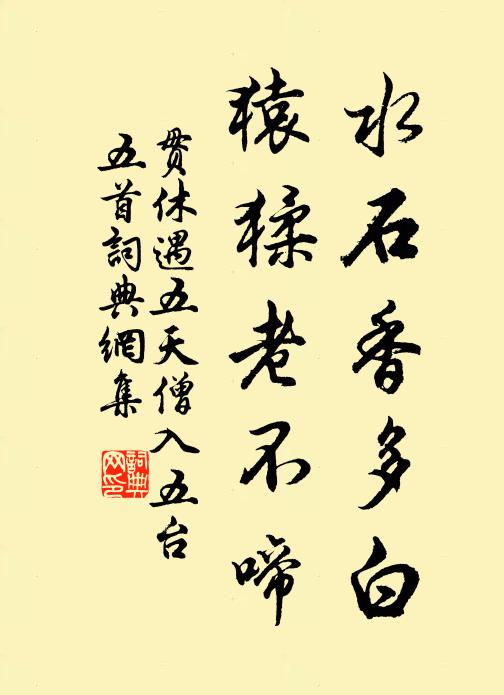 水石香多白
猿猱老不啼
貫休遇五天僧入五台
五首詞典網集
詞典
网印